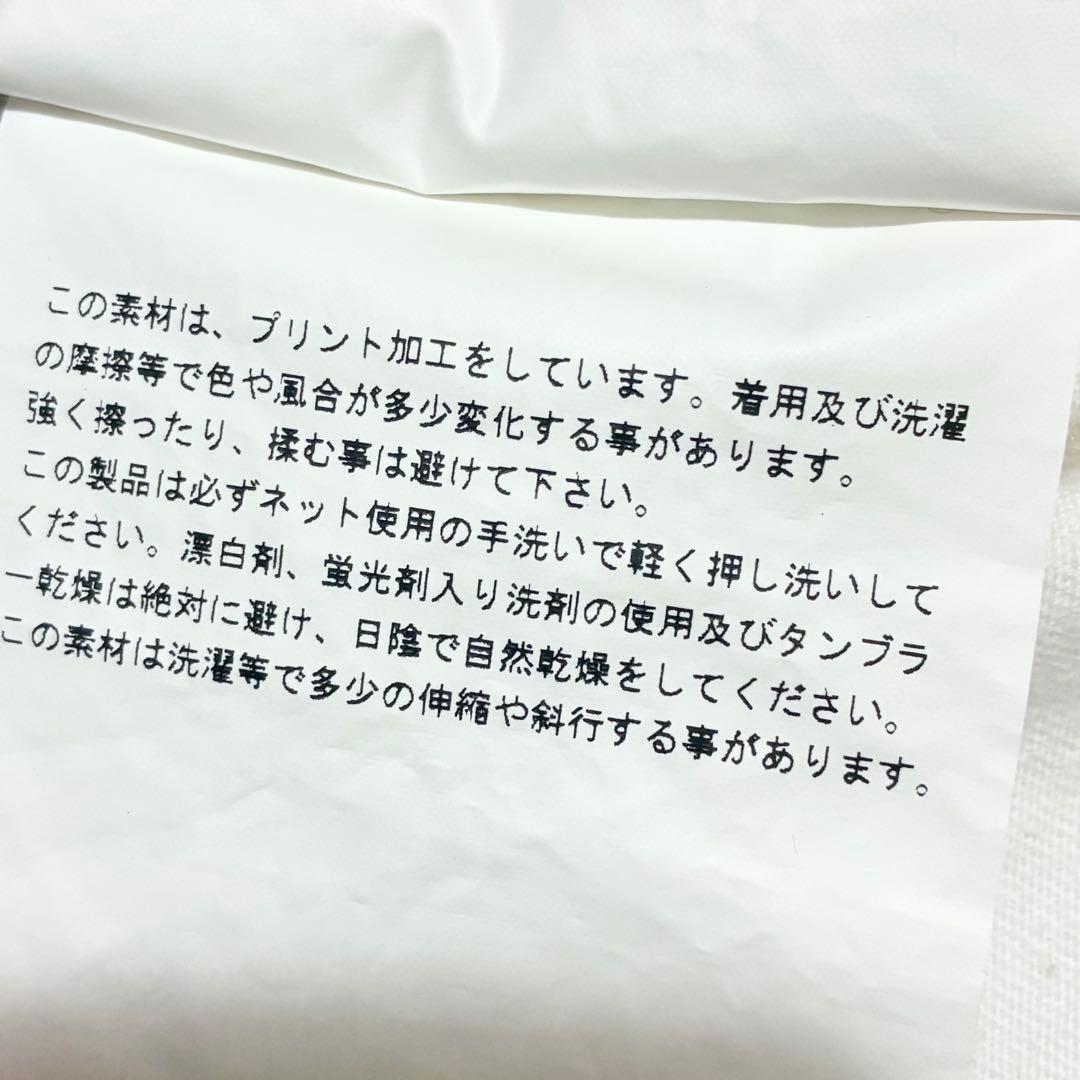 この素材は、プリント加工をしています。着用及び洗濯
の摩擦等で色や風合が多少変化する事があります。
強く擦ったり、揉む事は避けて下さい。
この製品は必ずネット使用の手洗いで軽く押し洗いして
ください。漂白剤、蛍光剤入り洗剤の使用及びタンブラ
ー乾燥は絶対に避け、日陰で自然乾燥をしてください。
この素材は洗濯等で多少の伸縮や斜行する事があります。